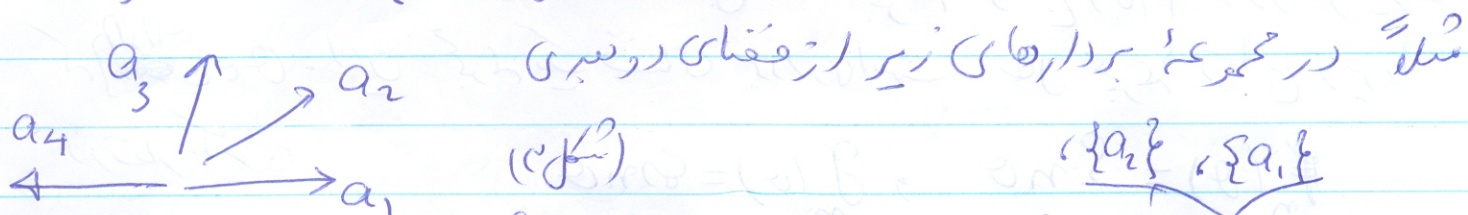 مثلاً در مجموعهٔ بردارهای زیر از فضای دو بعدی
a₃
a₂
a₄
(شکل ۳)
{a₁}، {a₂}،
a₁